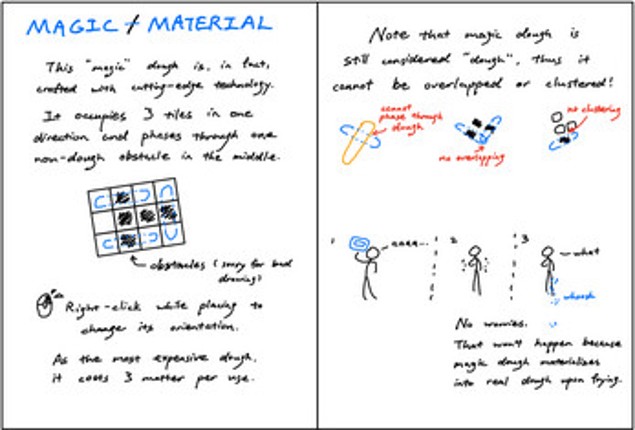 MAGIC MATERIAL
This "magic" dough is, in fact,
crafted with cutting-edge technology.
It occupies 3 tiles in one
direction and phases through one
non-dough obstacle in the middle.
obstacles (sorry for bad
drawing)
Right-click while placing to
change its orientation.
As the most expensive dough,
it costs 3 matter per use.
Note that magic dough is
still considered "dough", thus it
cannot be overlapped or clustered!
cannot
phase through
dough
no overlapping
no clustering
1
2
3
what
whoosh
No worries.
That won't happen because
magic dough materializes
into real dough upon frying.